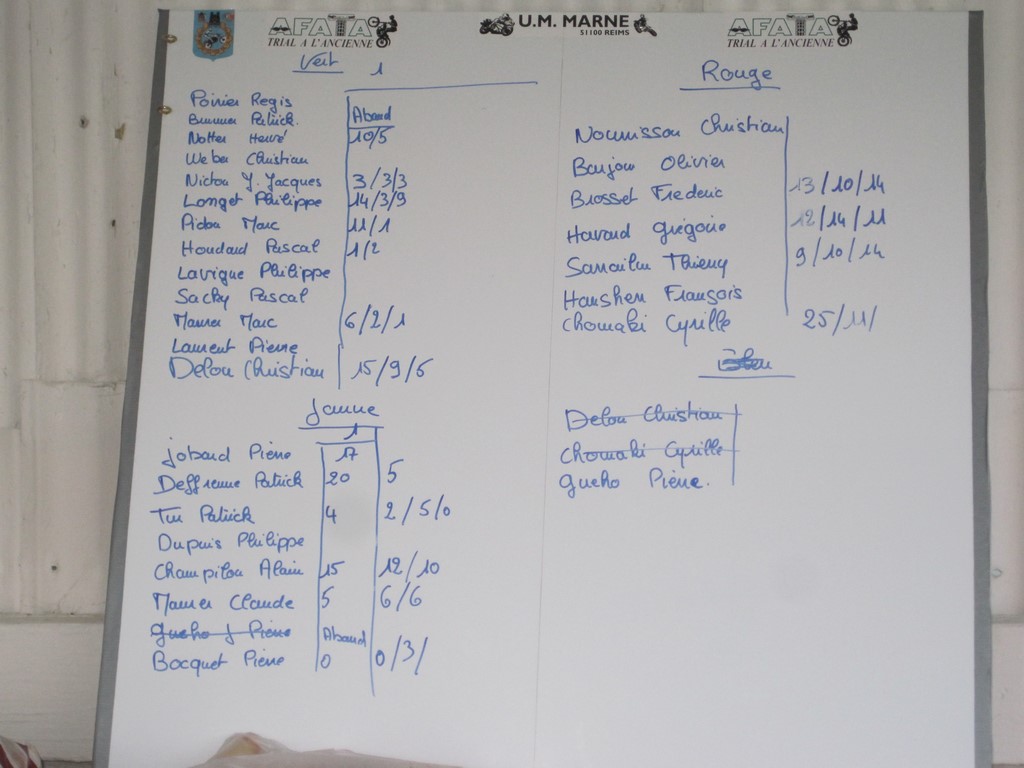 AFATA
TRIAL A L'ANCIENNE
U.M. MARNE
51100 REIMS
AFATA
TRIAL A L'ANCIENNE
Vert 1
Poirier Regis
Patrick. Aband
Notter Hervé 10/5
Weber Christian
Nicton J. Jacques 3/3/3
Longet Philippe 14/3/9
Pidou Marc 11/1
Houdard Pascal 1/2
Lavigne Philippe
Sachy Pascal
Maurer Marc 6/2/1
Laurent Pierre
Delou Christian 15/9/6
Jaune
1
Jobard Pierre 17
Deffrenne Patrick 20 5
Tur Patrick 4 2/5/0
Dupuis Philippe
Champilou Alain 15 12/10
Maurer Claude 5 6/6
Gueho J Pierre Aband
Bocquet Pierre 0 0/3/
Rouge
Nourrisson Christian
Boujou Olivier
Brosset Frederic 13/10/14
Havard Grégoire 12/14/11
Thierry 9/10/14
Hanshen François
Chomaki Cyrille 25/11/
Delou Christian
Chomaki Cyrille
Gueho Pierre.